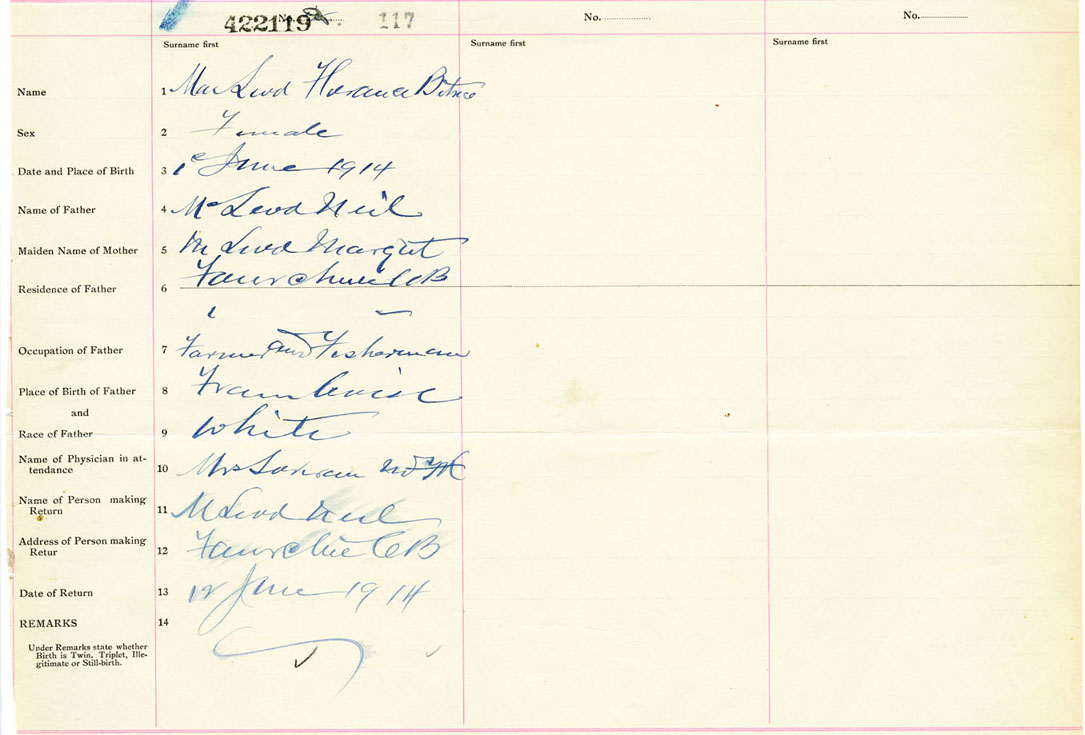 No. 422119 117 No. No.
Surname first Surname first Surname first
Name 1 MacLeod Florance
Sex 2 Female
Date and Place of Birth 3 June 1914
Name of Father 4 McLeod Neil
Maiden Name of Mother 5 McLeod Margret
Residence of Father 6 CB
Occupation of Father 7 Farmer and Fisherman
Place of Birth of Father 8 Framboise
and
Race of Father 9 White
Name of Physician in at-
tendance 10 Mrs
Name of Person making
Return 11 McLeod Neil
Address of Person making
Retur 12 CB
Date of Return 13 12 June 1914
REMARKS 14
Under Remarks state whether
Birth is Twin, Triplet, Ille-
gitimate or Still-birth.